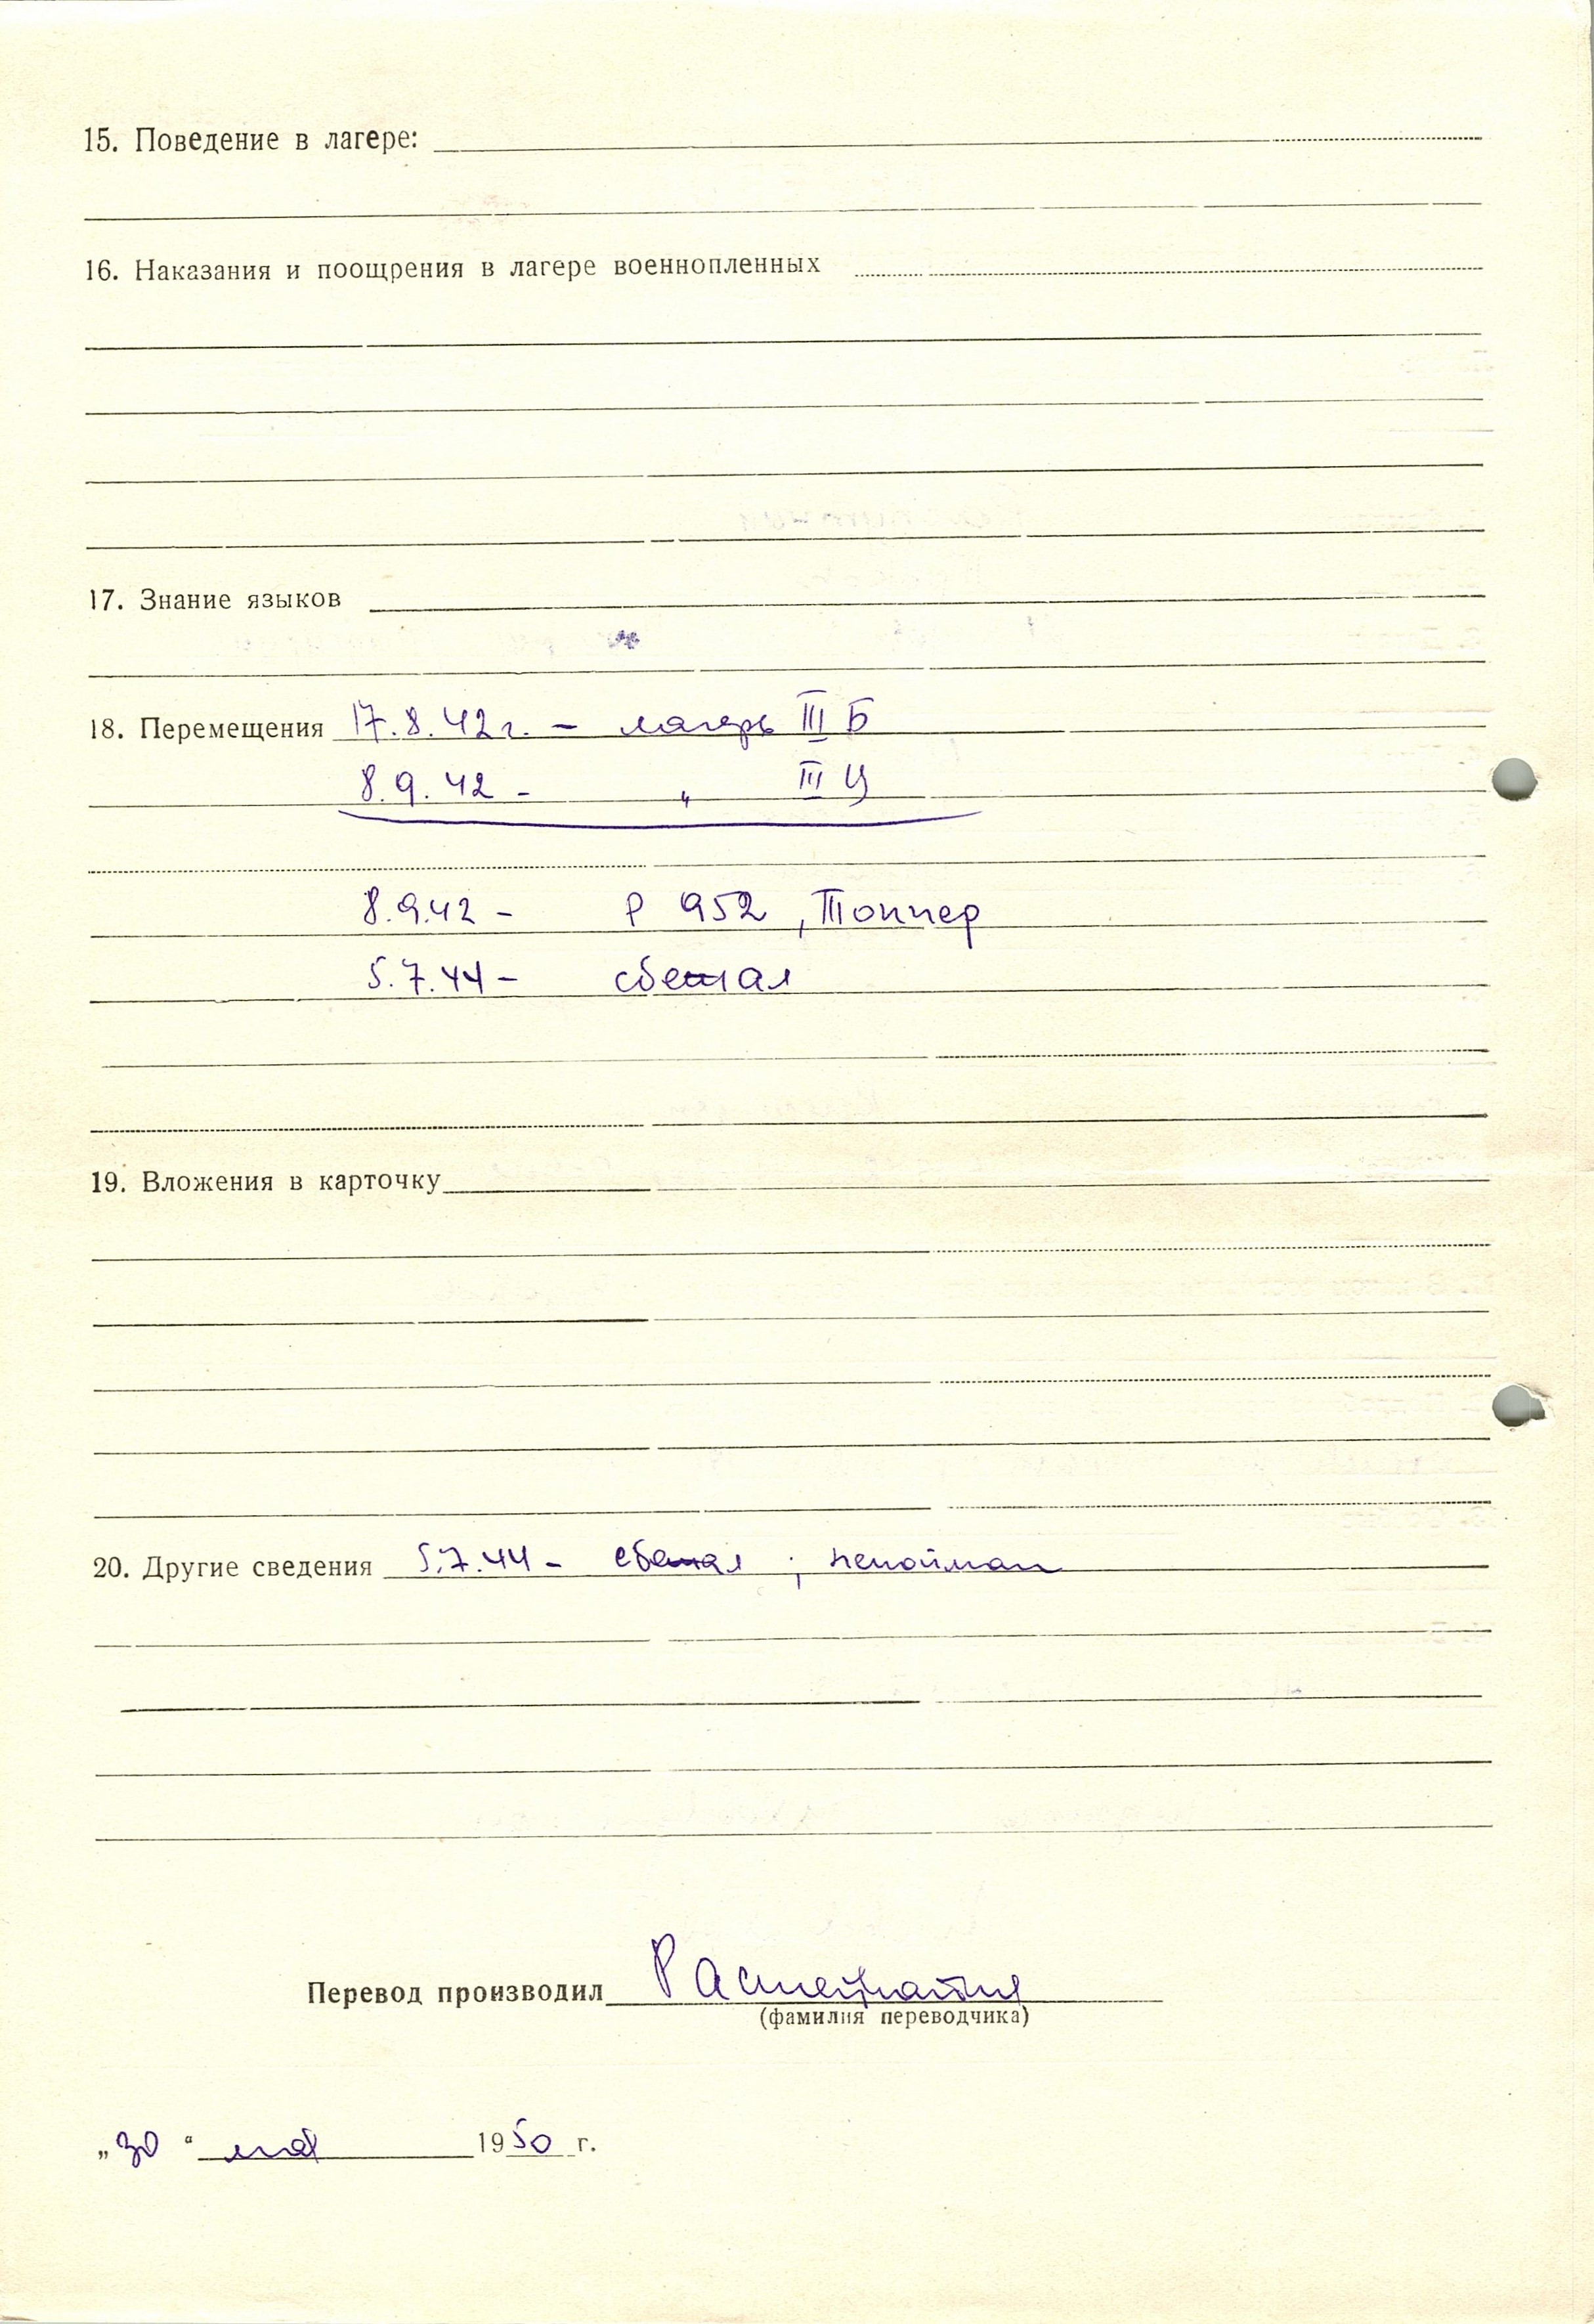 15. Поведение в лагере:
16. Наказания и поощрения в лагере военнопленных
17. Знание языков
18. Перемещения 17.8.42 г. – лагерь III Б
8.9.42 – " III Ц
8.9.42 – Р 952, Топпер
5.7.44 – сбежал
19. Вложения в карточку
20. Другие сведения 5.7.44 – сбежал ; непойман
Перевод производил
(фамилия переводчика)
„30“ мая 1950 г.